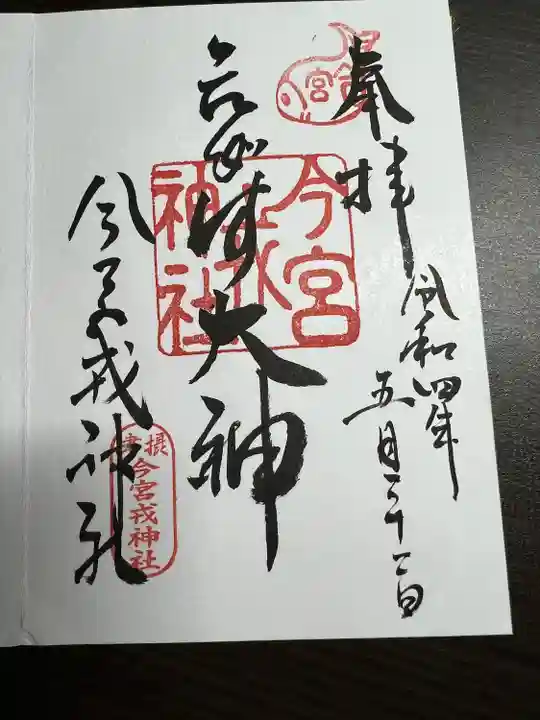 奉拝
令和四年
五月二十二日
ゑびす大神
今宮戎神社
今宮
戎
神社
摂津
今宮戎神社